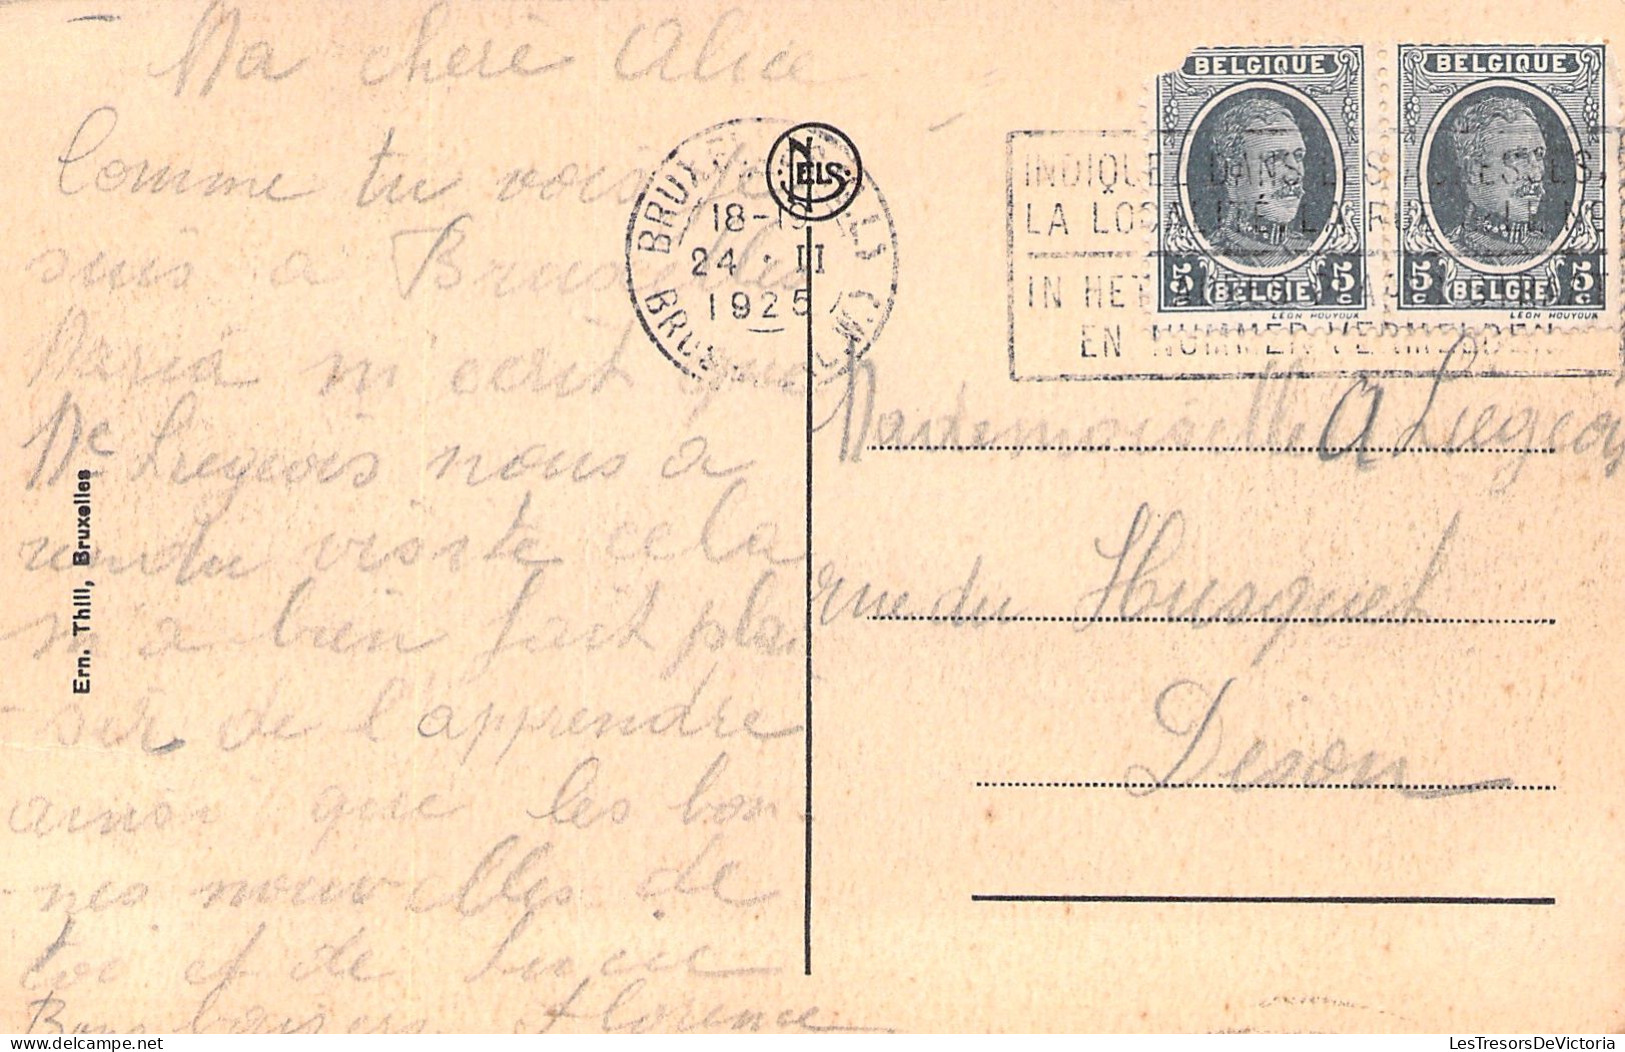 Ma chere Alice
Comme tu vois je
suis a Bruxelles
Maria m'ecrit que
Me Liegeois nous a
rendu visite cela
m'a bien fait plai
-sir de l'apprendre
ainsi que les bon-
-nes nouvelles de
toi et de Lucie
Bons baisers Florence
Ern. Thill, Bruxelles
NELS
18-19
24 · II
1925
BELGIQUE
5c BELGIË 5c
LÉON HOUYOUX
BELGIQUE
5c BELGIË 5c
LÉON HOUYOUX
INDIQUEZ DANS LES ADRESSES,
LA LOCALITÉ, LA RUE & LE No
IN HET
EN NUMMER VERMELDEN
Mademoiselle A Liegeois
rue du Husquet
Dison
LesTresorsDeVictoria